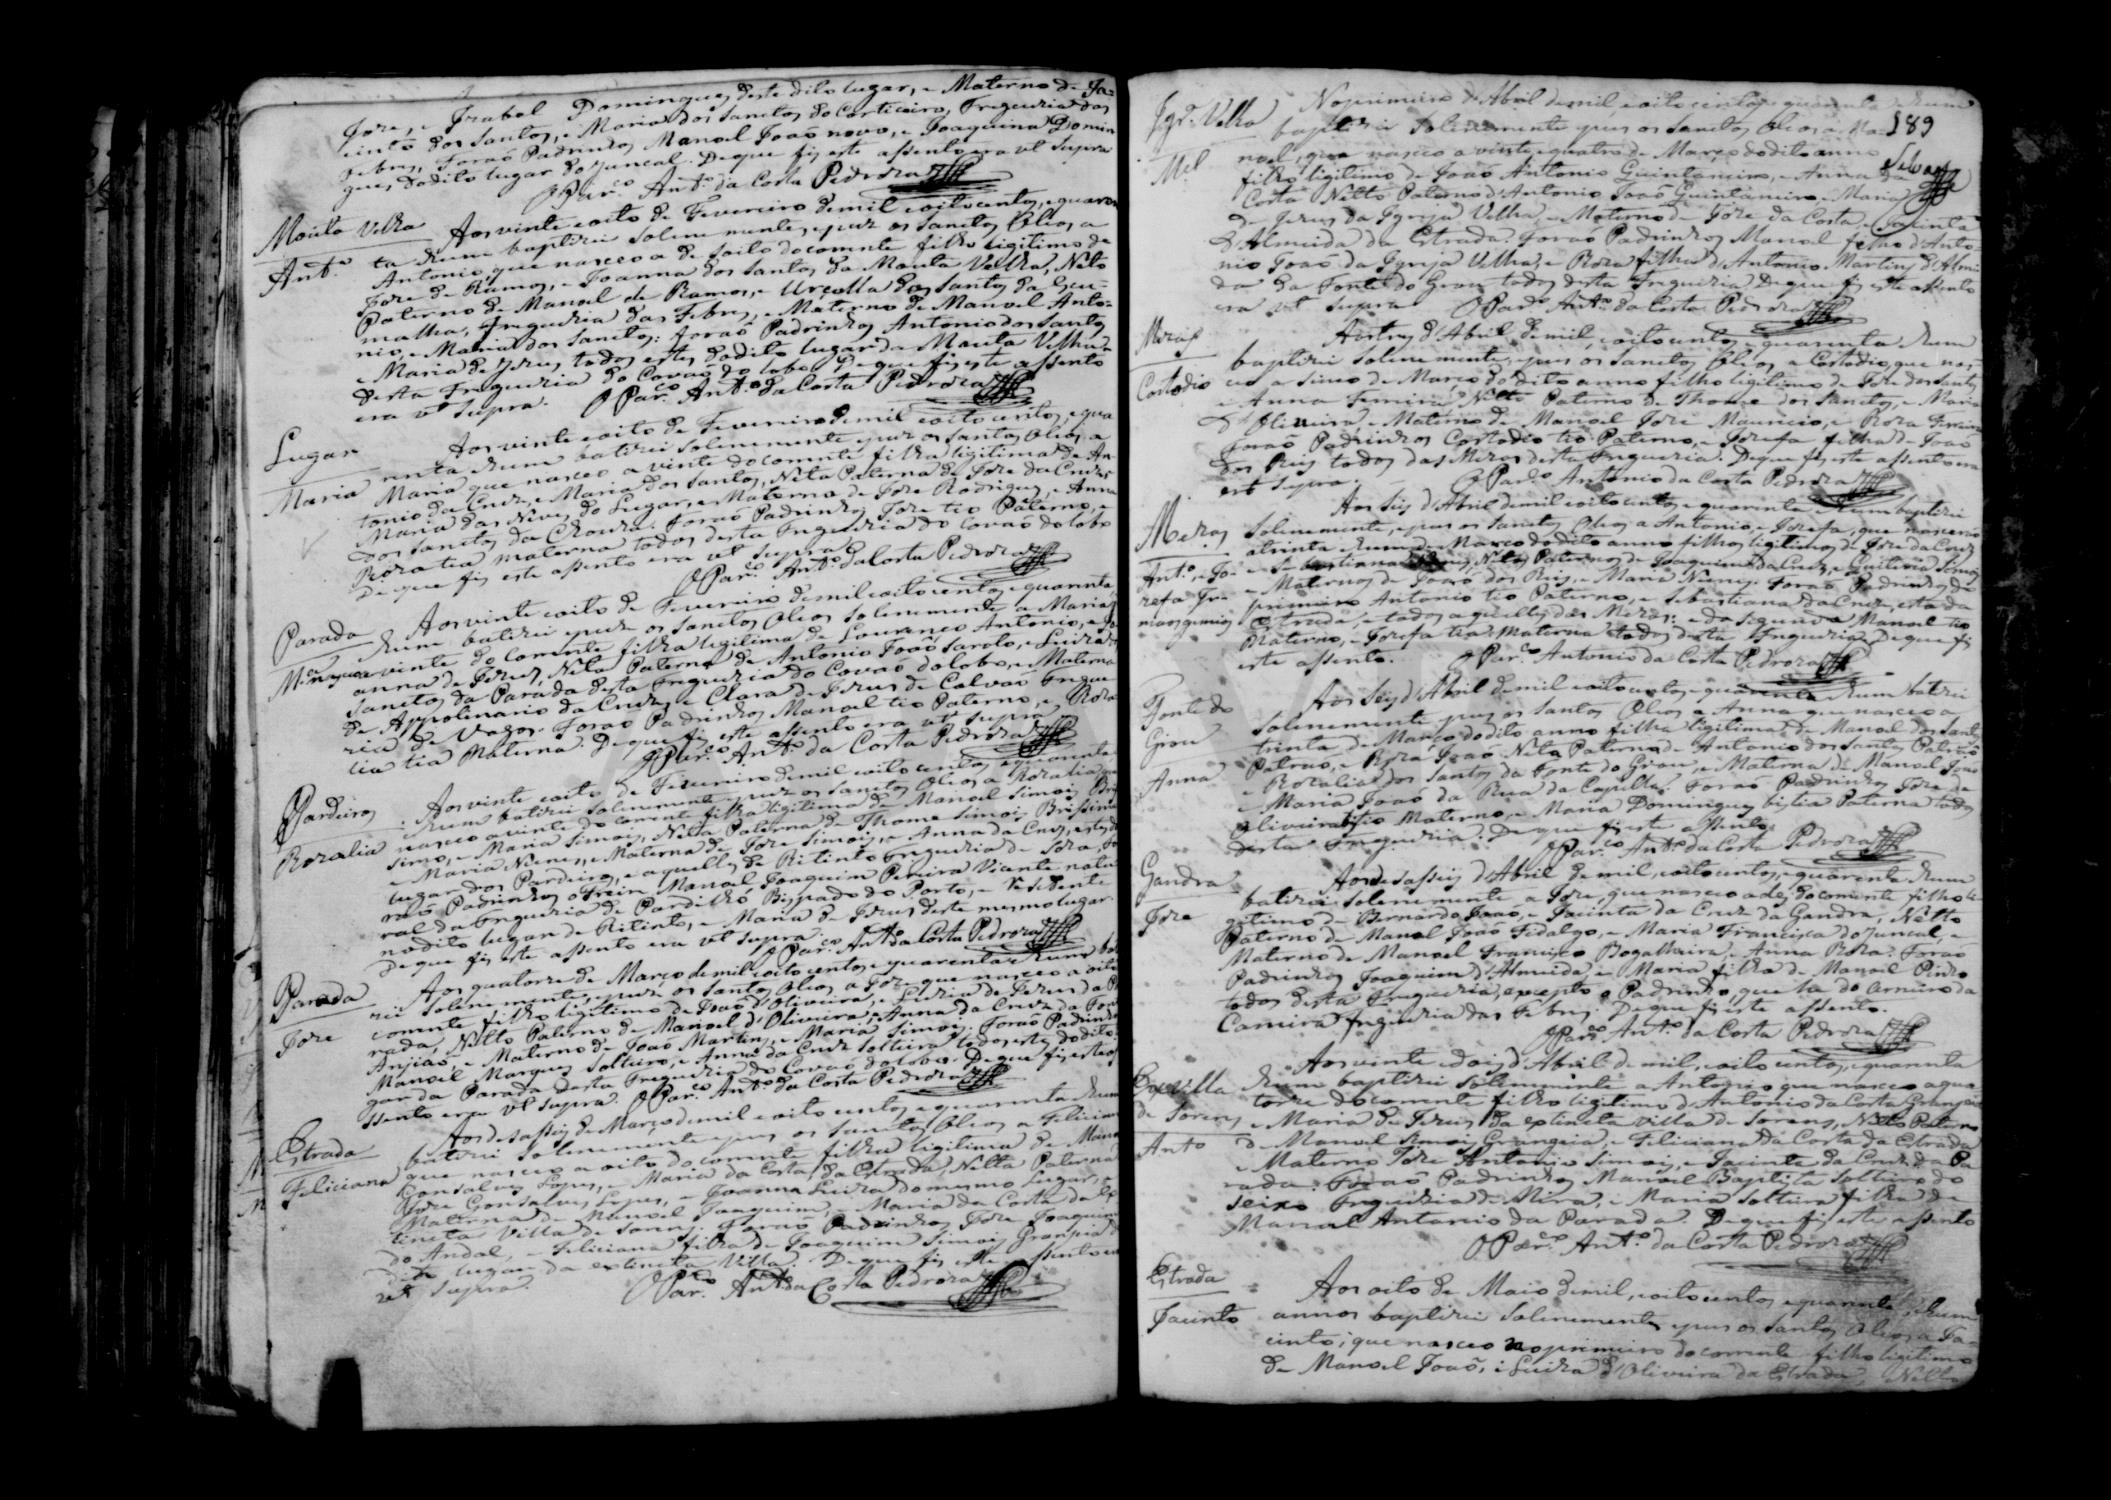 Joze, e Izabel Domingues deste dito lugar, e Materno de Ja-
cinto dos Santos, e Maria dos Sanctos do Corticeiro, Freguezia das
Febres, Foraõ Padrinhos Manoel Joaõ novo, e Joaquina Domin
gues, do dito lugar do Juncal. De que fis este assento era vt supra
O Par.co Ant.o da Costa Pedroza
Mouta Velha
Ant.o
Aos vinte e oito de Fevereiro de mil e oito centos, e quaren
ta e hum baptizei solemnemente, e puz os Sanctos Oleos a
Antonio, que nasceo a de soito do corrente filho legitimo de
Joze de Ramos, e Joanna dos Santos da Mouta Velha, Neto
Paterno de Manoel de Ramos, e Urçolla dos Santos da
malha, Freguezia das Febres, e Materno de Manoel Anto-
nio, e Maria dos Sanctos: foraõ Padrinhos Antonio dos Santos
e Maria de Jezus, todos estes do dito lugar da Mouta Velha
desta Freguezia do Covaõ do Lobo. De que fis este assento
era vt supra. O Par.co Ant.o da Costa Pedroza
Lugar
Maria
Aos vinte e oito de Fevereiro de mil e oito centos, e qua
renta e hum batizei solemnemente, e puz os Santos Oleos a
Maria que nasceo a vinte do corrente filha legitima de An
tonio da Cruz, e Maria dos Santos, Neta Paterna de Joze da Cruz, e
Maria das Neves do Lugar, e Materna de Joze Rodrigues, e Anna
dos Sanctos da Chouza. Foraõ Padrinhos Joze tio Paterno, e
Roza tia materna todos desta Freguezia do Covaõ do Lobo
De que fis este assento era vt supra
O Par.co Ant.o da Costa Pedroza
Parada
M.a
Aos vinte e oito de Fevereiro de mil e oito centos e quarenta,
e hum batizei e puz os Sanctos Oleos solemnemente a Maria
nasceo a vinte do corrente filha legitima de Lourenco Antonio, e Jo
anna de Jezus, Neta Paterna de Antonio Joaõ Sarolo, e Luiza dos
Sanctos da Parada desta Freguezia do Covaõ do Lobo, e Materna
de Appolinario da Cruz, e Clara de Jezus de Calvaõ Fregue
zia de Vagos. Foraõ Padrinhos Manoel tio Paterno, e Roza
lia tia Materna. De que fis este assento era vt supra
O Par.co Ant.o da Costa Pedroza
Pardeiros
Rozalia
Aos vinte e oito de Fevereiro de mil e oito centos e quarenta
e hum batizei solemnemente e puz os Sanctos Oleos a Rozalia que
nasceo a vinte do corrente filha legitima de Manoel Simois Bris
simo, e Maria Simois, Neta Paterna de Thome Simois Brissimo
e Maria Nunes, e Materna de Joze Simois, e Anna da Cruz, estes do
lugar dos Pardeiros, e aquelles de Ritinto Freguezia de Soza. Fo
raõ Padrinhos o Frein Manoel Joaquim Pereira Vicente natu
ral da Freguezia de Pardilhó Bispado do Porto, e Rezidente
no dito lugar de Ritinto, e Maria de Jezus deste mesmo lugar.
De que fis este assento era vt supra.
O Par.co Ant.o da Costa Pedroza
Parada
Joze
Aos quatorze de Março de mil e oito centos, e quarenta e hum bati
zei solemnemente, e puz os Santos Oleos a Joze que nasceo a oito
corrente filho legitimo de Joaõ d'Oliveira, e Luzia de Jezus da Pa
rada, Netto Paterno de Manoel d'Oliveira, e Anna da Cruz da Fonte
Anjiaõ e Materno de Joaõ Martins, e Maria Simois. Foraõ Padrinhos
Manoel Marques Solteiro, e Anna da Cruz solteira todos estes do dito lu
gar da Parada desta Freguezia do Covaõ do Lobo. De que fis este a
ssento era vt supra. O Par.co Ant.o da Costa Pedroza
Estrada
Feliciana
Aos desasseis de Março de mil e oito centos e quarenta e hum
batizei solemnemente e puz os Sanctos Oleos a Feliciana
que nasceo a oito do corrente filha legitima de Manoel
Gonsalves Lopes, e Maria da Costa da Estrada, Netta Paterna
Joze Gonsalves Lopes, e Joanna Luiza do mesmo lugar, e
Materna de Manoel Joaquim, e Maria da Costa da ex
tincta Villa de Sorens. Foraõ Padrinhos Joze Joaquim
do Andal, e Feliciana filha de Joaquim Simois Grangeia do
dito lugar da extincta Villa. De que fis este assento era
vt supra. O Par.co Ant.o da Costa Pedroza
189
Igr.a Velha
M.el
No primeiro d'Abril de mil e oito centos e quarenta e hum
baptizei solemnemente e puz os Sanctos Oleos a Ma-
noel, que nasceo a vinte e quatro de Março do dito anno
filho legitimo de Joaõ Antonio Quintaneiro, e Anna da
Costa Netto Paterno d'Antonio Joaõ Quintaneiro, e Maria
de Jezus da Igreja Velha, e Materno de Joze da Costa, e Jacinta
d'Almeida da Estrada. Foraõ Padrinhos Manoel filho d'Anto-
nio Joaõ da Igreja Velha, e Roza filha d'Antonio Martins d'Almei
da da Fonte do Grou todos desta Freguezia De que fis este assento
era vt supra O Par.co Ant.o da Costa Pedroza
Mezas
Costodio
Aos tres d'Abril de mil, e oito centos, e quarenta e hum
baptizei solemnemente, e puz os Sanctos Oleos a Costodio, que nas-
ceo a sinco de Março do dito anno filho legitimo de Joze dos Santos
e Anna Ferreira, Netto Paterno de Thome dos Sanctos, e Maria
d'Oliveira, e Materno de Manoel Joze Mauricio, e Roza Ferreira
Foraõ Padrinhos Costodio tio Paterno, e Jozefa filha de Joaõ
dos Reis todos das Mezas desta Freguezia. De que fis este assento era
vt supra. O Par.co Antonio da Costa Pedroza
Mezas
Ant.o e Jo-
zefa Ir-
maos gemios
Aos seis d'Abril de mil e oito centos, e quarenta e hum baptizei
solemnemente, e puz os Sanctos Oleos a Antonio, e Jozefa, que nasceraõ
a trinta e hum de Março do dito anno filhos legitimos de Joze da Cruz
e Sebastianna Nunes, Netos Paternos de Joaquim da Cruz, e Quiteria Simois
e Maternos de Joaõ dos Reis, e Maria Nunes. Foraõ Padrinhos do
primeiro Antonio tio Paterno, e Sebastiana da Cruz, esta da
Estrada, e todos aquelles das Mezas: e da segunda Manoel tio
Paterno, e Jozefa tia Materna todos desta Freguezia. De que fis
este assento. O Par.co Antonio da Costa Pedroza
Fonte do
Grou
Anna
Aos seis d'Abril de mil e oito centos, e quarenta e hum batizei
solemnemente e puz os Santos Oleos a Anna que nasceo a
trinta de Março do dito anno filha legitima de Manoel dos Santos
Patrao, e Roza Joaõ Neta Paterna de Antonio dos Santos Patraõ
e Rozalia dos Santos da Fonte do Grou, e Materna de Manoel Joaõ
e Maria Joaõ da Rua da Capella. Foraõ Padrinhos Joze de
Oliveira tio Materno, e Maria Domingues bistia Paterna todos
desta Freguezia. De que fis este assento.
O Par.co Ant.o da Costa Pedroza
Gandra
Joze
Aos desasseis d'Abril de mil, e oito centos, e quarenta e hum
batizei solemnemente a Joze, que nasceo a des do corrente filho le-
gitimo de Bernardo Joaõ, e Jacinta da Cruz da Gandra, Netto
Paterno de Manoel Joaõ Fidalgo, e Maria Francisca do Juncal, e
Materno de Manoel Francisco Bogalheira, e Anna Roza. Foraõ
Padrinhos Joaquim d'Almeida, e Maria filha de Manoel Pinho
todos desta Freguezia, excepto o Padrinho, que he do Arneiro da
Camera Freguezia das Febres. De que fis este assento.
O Par.co Ant.o da Costa Pedroza
Ex. Villa
de Sorens
Anto
Aos vinte e dois d'Abril de mil, e oito centos, e quarenta
e hum baptizei solemnemente a Antonio que nasceo a qua
torze do corrente filho legitimo d'Antonio da Costa Grangeia
e Maria de Jezus da extincta villa de Sorens, Netto Paterno
de Manoel Simois Grangeia, e Feliciana da Costa da Estrada
e Materno Joze Antonio Simois, e Jacinta da Cruz da Pa
rada. Foraõ Padrinhos Manoel Baptista solteiro do
Seixo Freguezia de Mira, e Maria solteira filha de
Manoel Antonio da Parada. De que fis este assento
O Par.co Ant.o da Costa Pedroza
Estrada
Jacinto
Aos oito de Maio de mil, e oito centos, e quarenta, e hum
annos baptizei solemnemente, e puz os Santos Oleos a Ja-
cinto, que nasceo no primeiro do corrente filho legitimo
de Manoel Joaõ, e Luiza d'Oliveira da Estrada, Netto